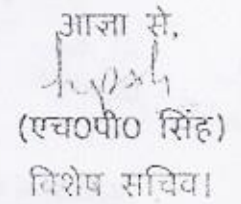 आज्ञा से,
(एच०पी० सिंह)
विशेष सचिव।